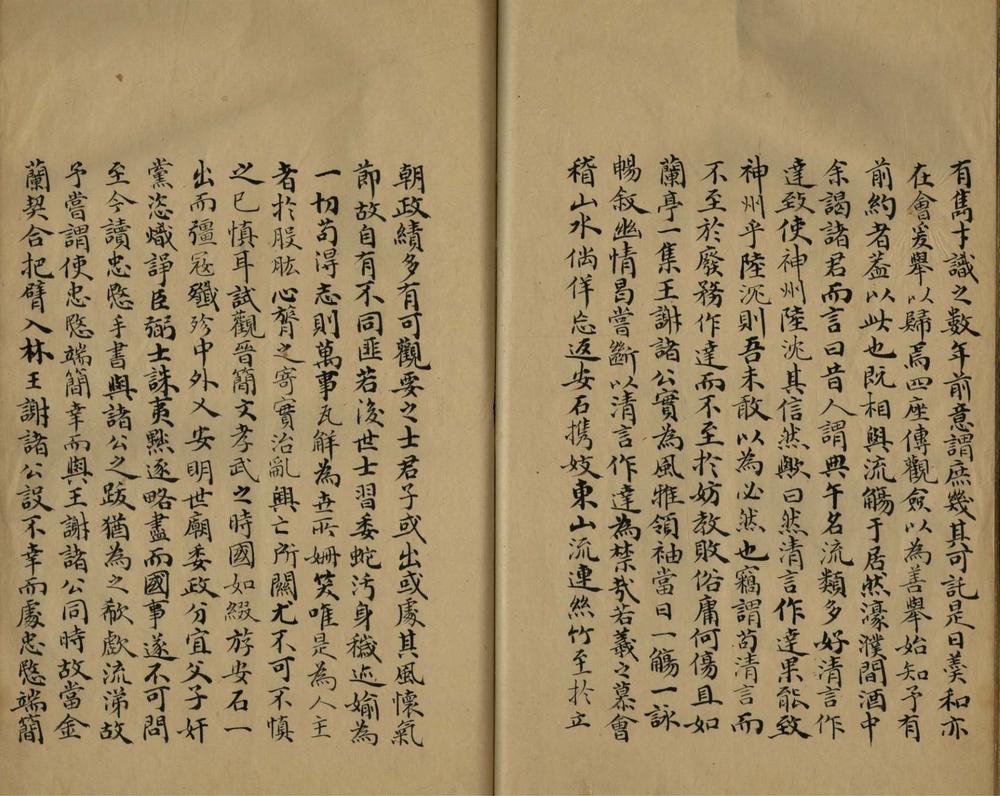 有雋才識之數年前意謂庶幾其可託是日羹和亦
在會爰舉以歸焉四座傳觀僉以為善舉始知予有
前約者蓋以此也既相與流觴于居然濠濮間酒中
余謁諸君而言曰昔人謂典午名流類多好清言作
達致使神州陸沈其信然歟曰然清言作達果能致
神州乎陸沉則吾未敢以為必然也竊謂苟清言而
不至於廢務作達而不至於妨教敗俗庸何傷且如
蘭亭一集王謝諸公實為風雅領袖當日一觴一詠
暢叙幽情曷嘗斷以清言作達為禁哉若羲之慕會
稽山水倘佯忘返安石携妓東山流連絲竹至於立
朝政績多有可觀要之士君子或出或處其風懷氣
節故自有不同匪若後世士習委蛇汚身穢迹媮為
一切苟得志則萬事瓦解為世所姍笑唯是為人主
者於股肱心膂之寄實治亂興亡所關尤不可不慎
之已慎耳試觀晉簡文孝武之時國如綴斿安石一
出而彊寇殲殄中外乂安明世廟委政分宜父子奸
黨恣熾諍臣弼士誅夷黜逐略盡而國事遂不可問
至今讀忠愍手書與諸公之跋猶為之欷歔流涕故
予嘗謂使忠愍端簡幸而與王謝諸公同時故當金
蘭契合把臂入林王謝諸公設不幸而處忠愍端簡